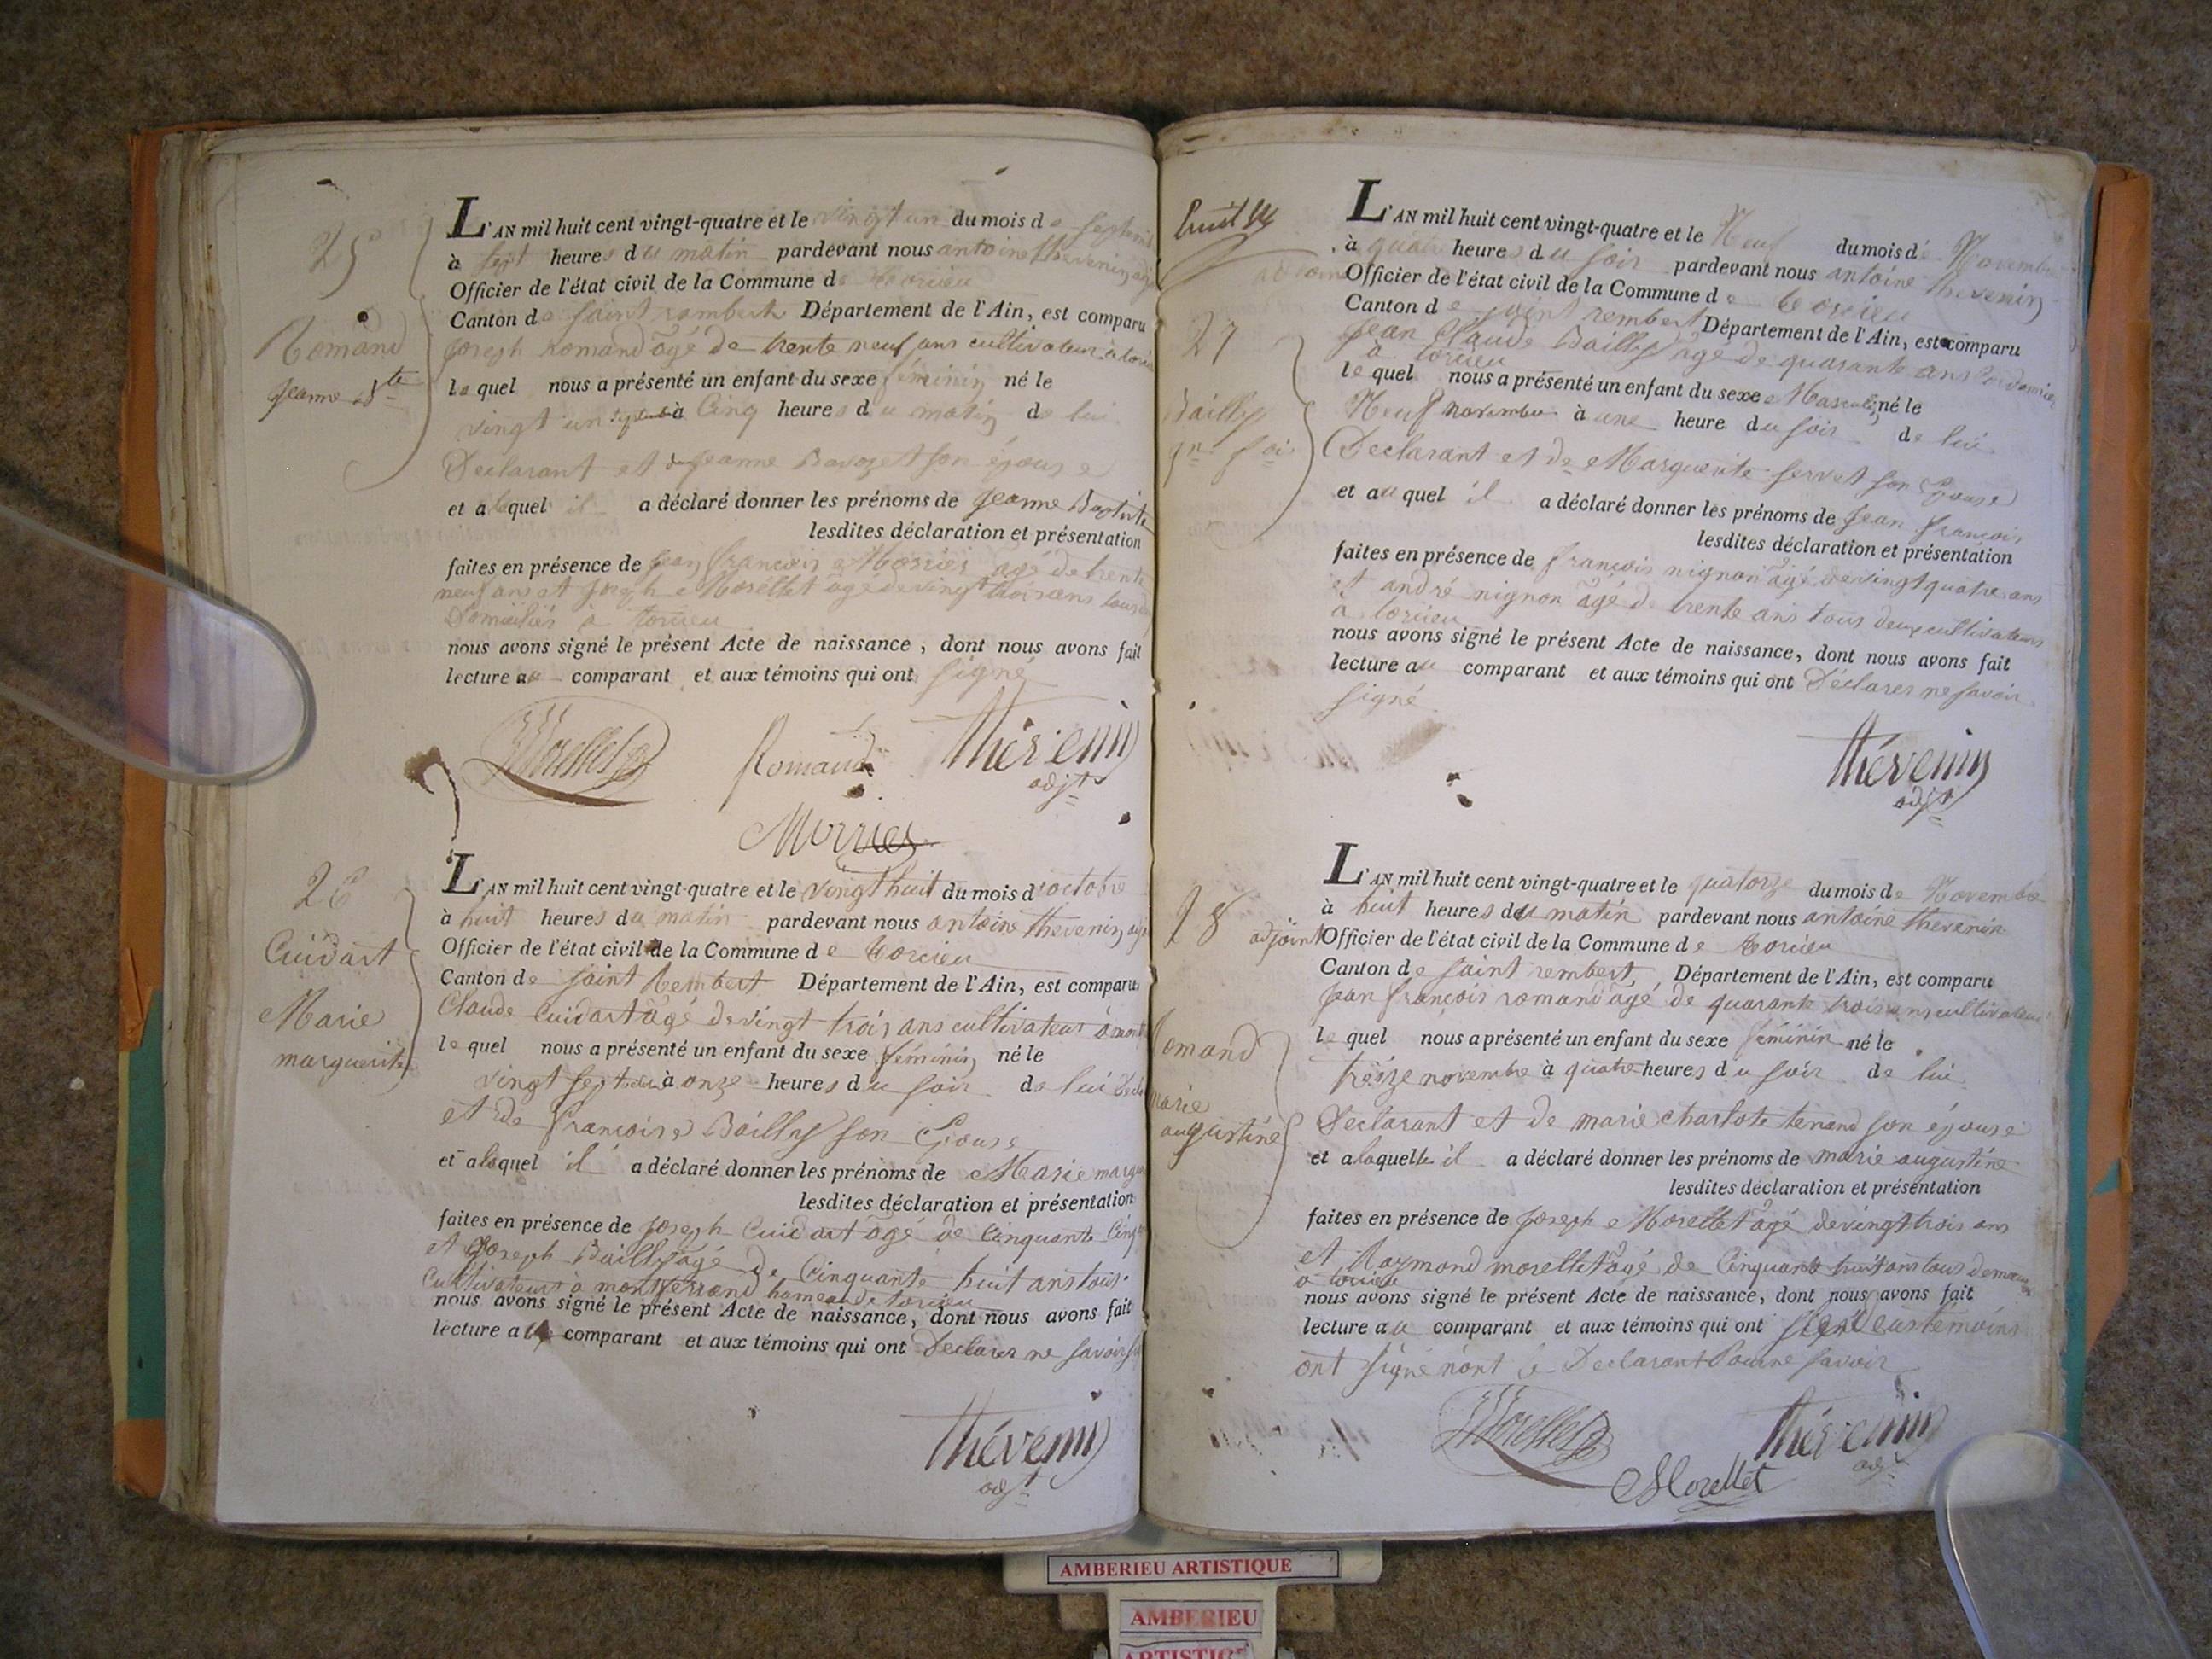 25
Romand
Jeanne Bte
L'AN mil huit cent vingt-quatre et le vingt un du mois de septemb
à sept heures du matin pardevant nous antoine thevenin adj
Officier de l'état civil de la Commune de torcieu
Canton de saint rambert Département de l'Ain, est comparu
Joseph Romand âgé de trente neuf ans cultivateur à torcieu
le quel nous a présenté un enfant du sexe féminin né le
vingt un septembre à Cinq heures du matin de lui
Déclarant et de jeanne Bavozet son épouse
et a laquel il a déclaré donner les prénoms de Jeanne Baptiste
lesdites déclaration et présentation
faites en présence de jean françois Morrier âgé de trente
neuf ans et Joseph Morellet âgé de vingt trois ans tous
Domiciliés à torcieu
nous avons signé le présent Acte de naissance, dont nous avons fait
lecture au comparant et aux témoins qui ont signé
Morellet Romand thévenin
adjt
26
Cuidart
Marie
marguerite
L'AN mil huit cent vingt-quatre et le vingt huit du mois d'octobre
à huit heures du matin pardevant nous antoine thevenin adj
Officier de l'état civil de la Commune de torcieu
Canton de saint Rembert Département de l'Ain, est comparu
Claude Cuidart âgé de vingt trois ans cultivateur à mont
le quel nous a présenté un enfant du sexe féminin né le
vingt sept à onze heures du soir de lui Decla
et de françoise Bailly son Epouse
et a laquel il a déclaré donner les prénoms de Marie margue
lesdites déclaration et présentation
faites en présence de Joseph Cuidart âgé de Cinquante Cinq
et Joseph Bailly âgé de Cinquante huit ans tous
Cultivateurs à montferrand hameau de torcieu
nous avons signé le présent Acte de naissance, dont nous avons fait
lecture au comparant et aux témoins qui ont Déclarer ne savoir
thévenin
adjt
27
Bailly
jn fois
L'AN mil huit cent vingt-quatre et le Neuf du mois de Novembre
à quatre heures du soir pardevant nous antoine thevenin
adjoint Officier de l'état civil de la Commune de torcieu
Canton de saint rembert Département de l'Ain, est comparu
Jean Claude Bailly âgé de quarante ans Cordonnier
à torcieu
le quel nous a présenté un enfant du sexe Masculin né le
Neuf novembre à une heure du soir de lui
Déclarant et de Marguerite servet son Epouse
et au quel il a déclaré donner les prénoms de Jean françois
lesdites déclaration et présentation
faites en présence de françois nignon âgé de vingt quatre ans
et andré nignon âgé de trente ans tous deux cultivateurs
à torcieu
nous avons signé le présent Acte de naissance, dont nous avons fait
lecture au comparant et aux témoins qui ont Déclarer ne savoir
signé
thévenin
adjt
28
Romand
marie
augustine
L'AN mil huit cent vingt-quatre et le quatorze du mois de Novembre
à huit heures du matin pardevant nous antoine thevenin
adjoint Officier de l'état civil de la Commune de torcieu
Canton de saint rembert Département de l'Ain, est comparu
Jean françois romand âgé de quarante trois ans cultivateur
le quel nous a présenté un enfant du sexe féminin né le
treize novembre à quatre heures du soir de lui
Déclarant et de marie charlote tenand son épouse
et a laquelle il a déclaré donner les prénoms de marie augustine
lesdites déclaration et présentation
faites en présence de Joseph Morellet âgé de vingt trois ans
et Raymond morellet âgé de Cinquante huit ans tous demeurant
à torcieu
nous avons signé le présent Acte de naissance, dont nous avons fait
lecture au comparant et aux témoins qui ont signé les témoins
ont signé nont le Déclarant Pour ne savoir
Morellet thévenin
adjt
Morellet
AMBERIEU ARTISTIQUE
AMBERIEU
ARTISTIQUE